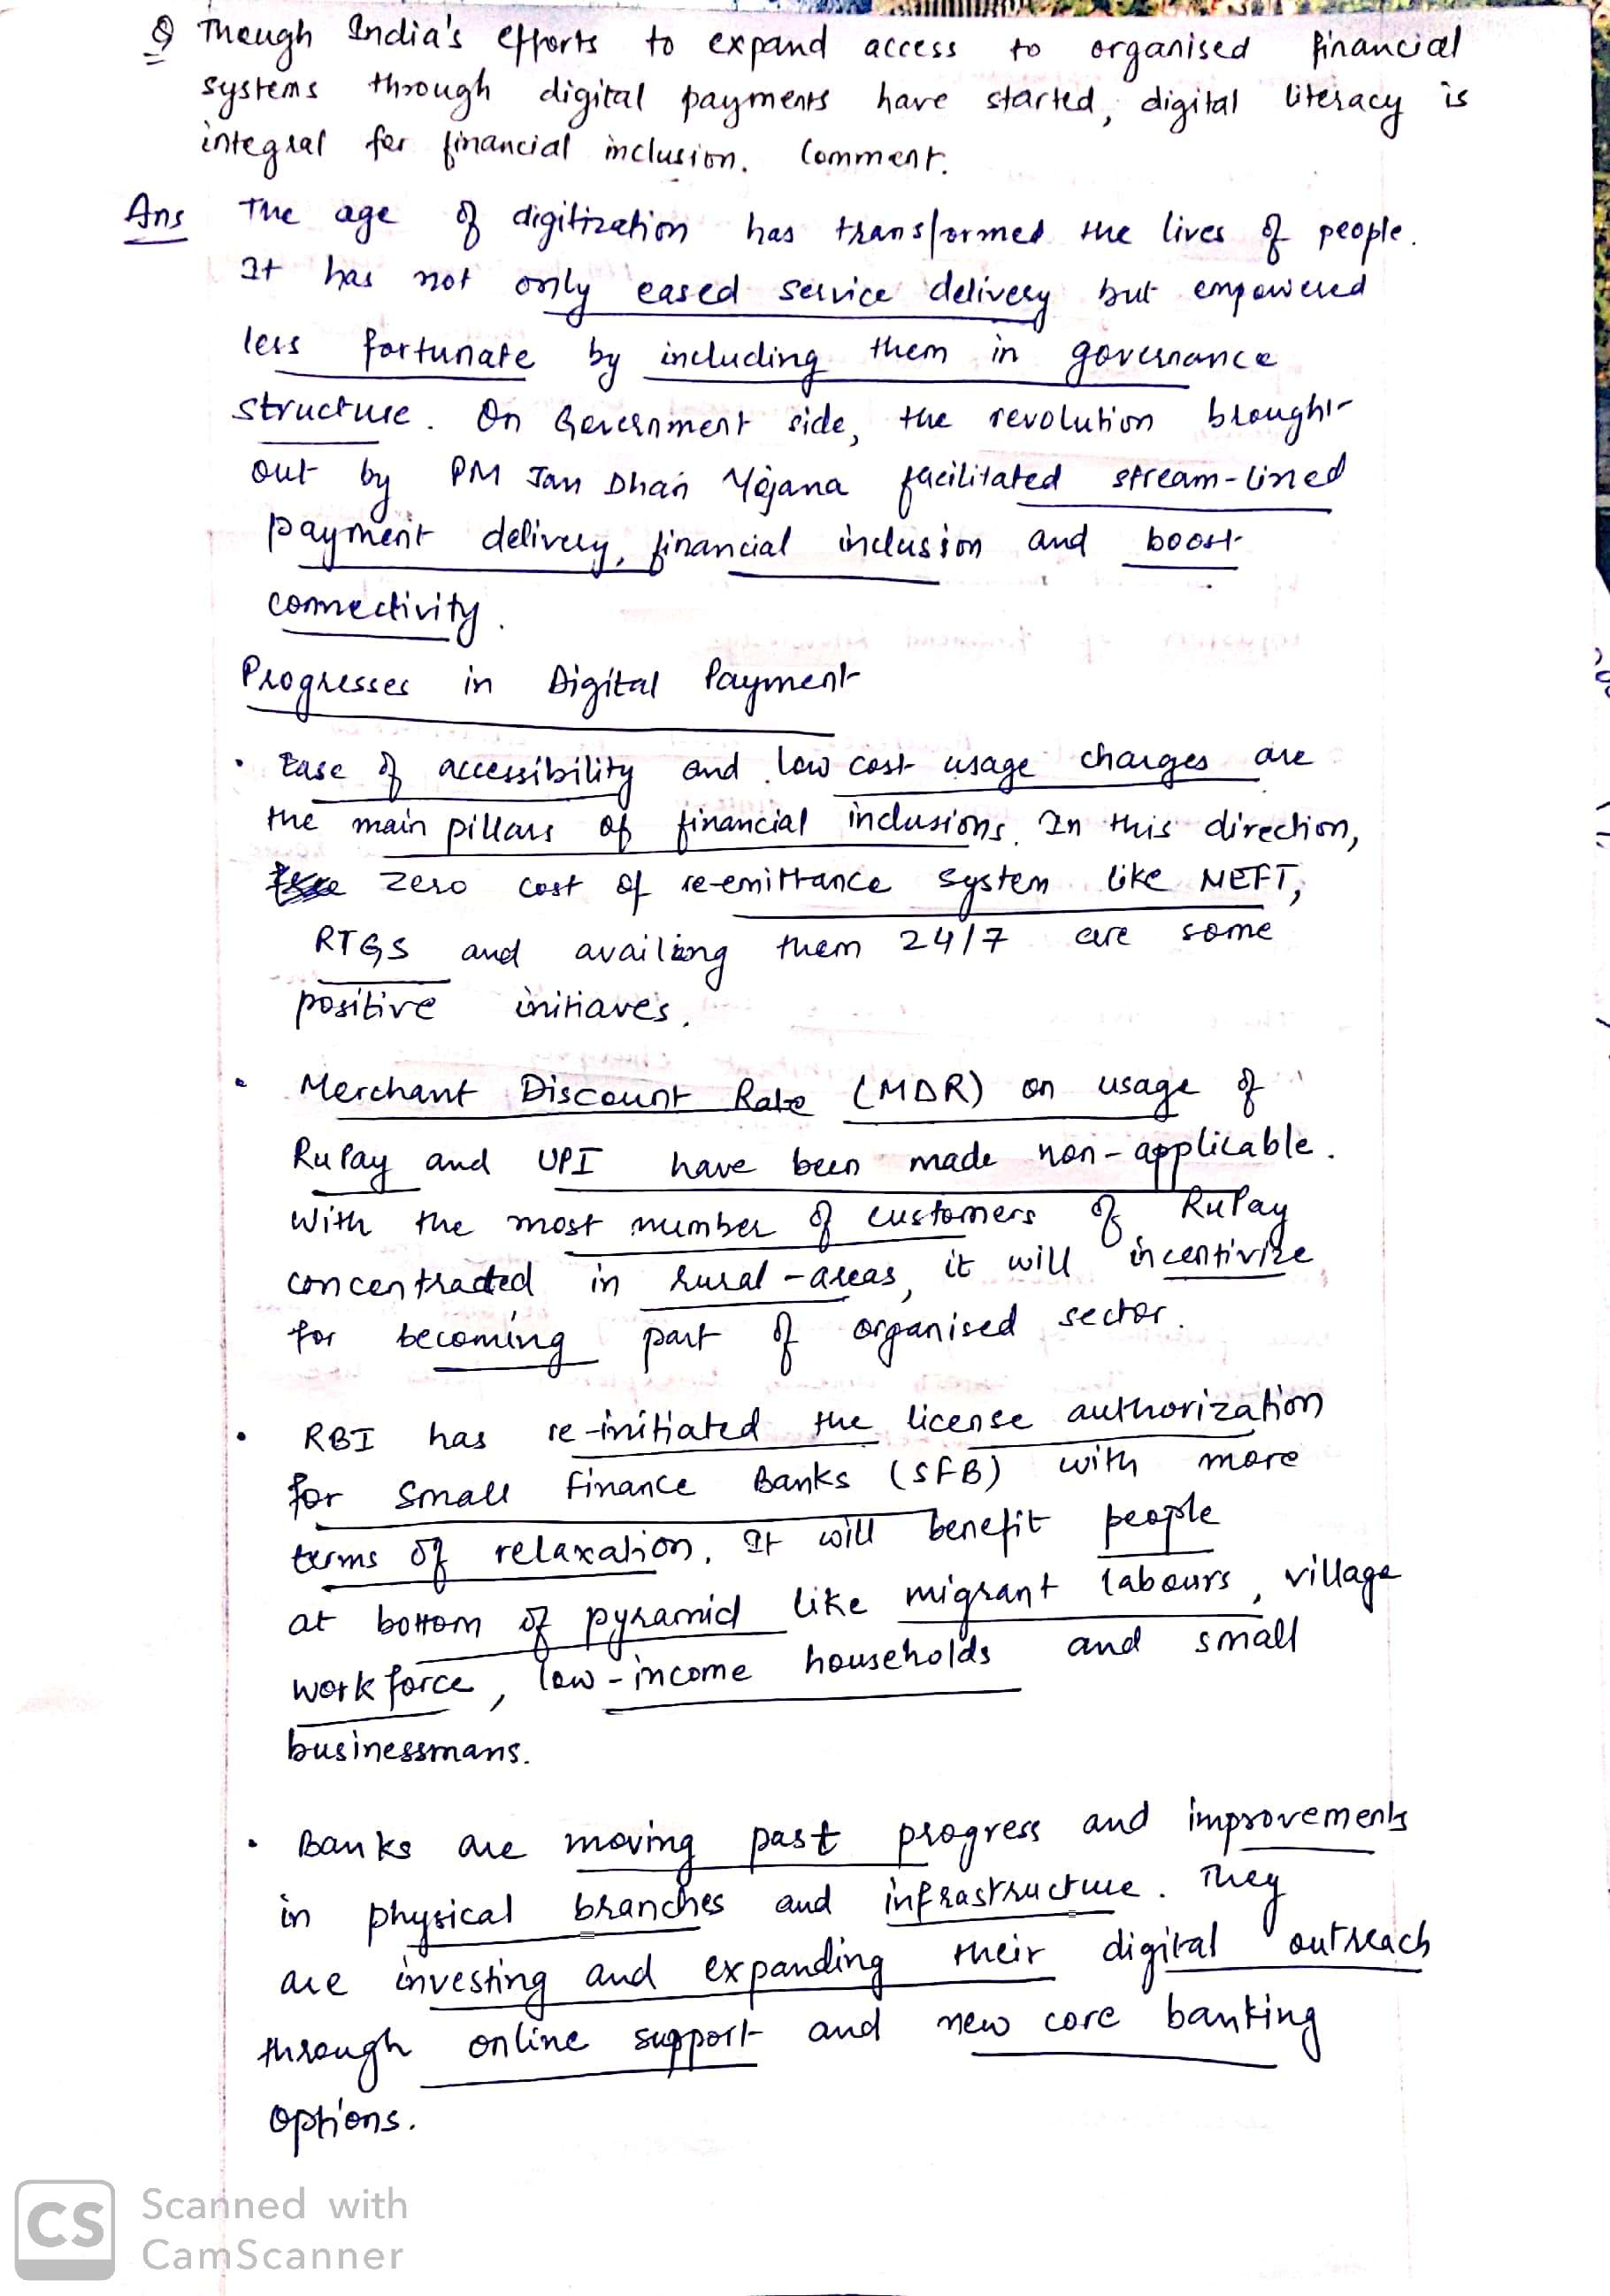 Q Though India's efforts to expand access to organised financial
systems through digital payments have started, digital literacy is
integral for financial inclusion. Comment.
Ans The age of digitization has transformed the lives of people.
It has not only eased service delivery but empowered
less fortunate by including them in governance
structure. On Government side, the revolution brought
out by PM Jan Dhan Yojana facilitated stream-lined
payment delivery, financial inclusion and boost
connectivity.
Progresses in Digital Payment
• Ease of accessibility and low cost usage charges are
the main pillars of financial inclusions. In this direction,
zero cost of re-emittance system like NEFT,
RTGS and availing them 24/7 are some
positive initiaves.
• Merchant Discount Rate (MDR) on usage of
RuPay and UPI have been made non-applicable.
With the most number of customers of RuPay
concentrated in rural-areas, it will incentivize
for becoming part of organised sector.
• RBI has re-initiated the license authorization
for Small Finance Banks (SFB) with more
terms of relaxation. It will benefit people
at bottom of pyramid like migrant labours, village
workforce, low-income households and small
businessmans.
• Banks are moving past progress and improvements
in physical branches and infrastructure. They
are investing and expanding their digital outreach
through online support and new core banking
options.
CS Scanned with
CamScanner